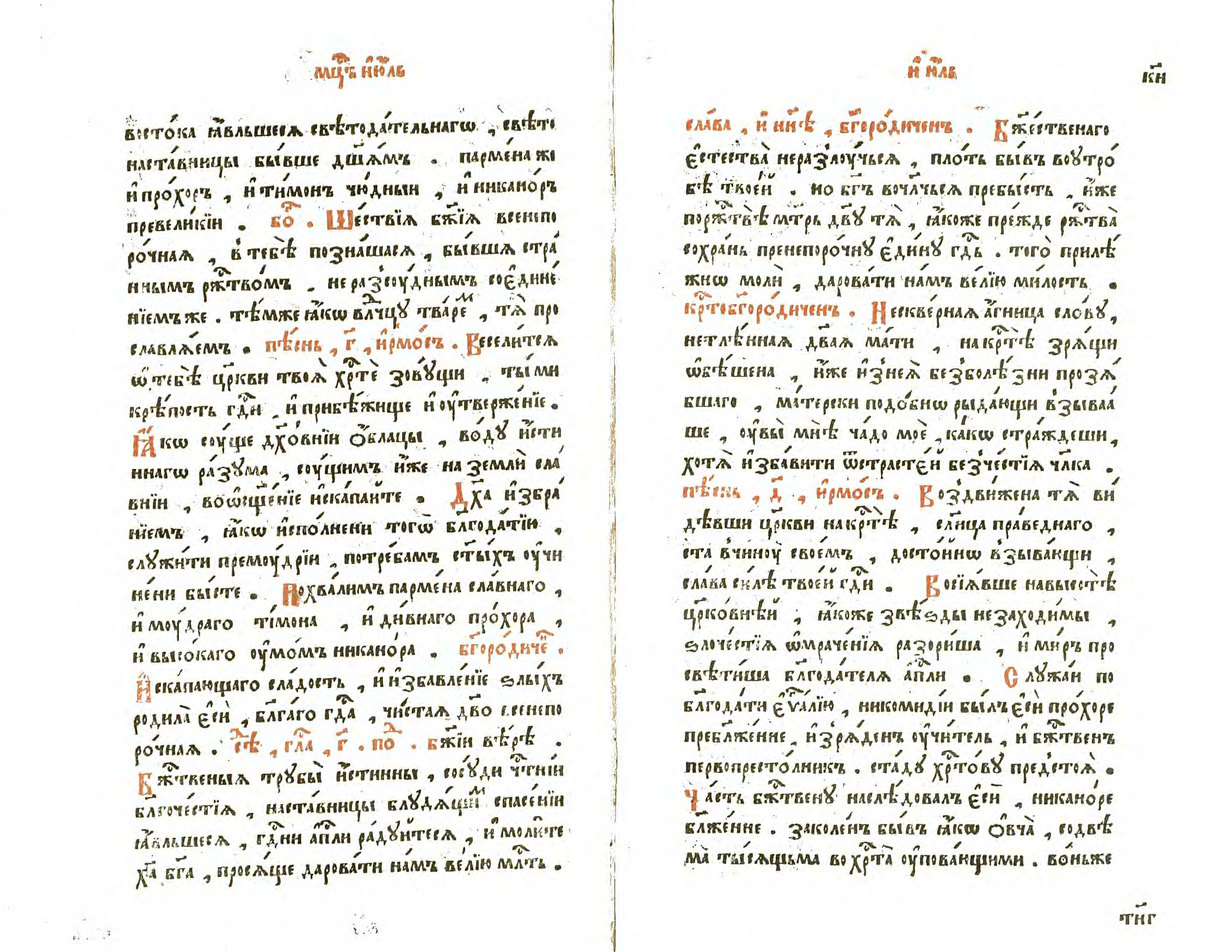 мц҃ъ і҆ю́ль
восто́ка ꙗ҆́вльшеся свѣтода́тельнагѡ , свѣ́то
наста́вницы бы́вше дш҃я́мъ . парме́на же
и҆ про́хоръ , и҆ ти́монъ чю́дныи , и҆ никано́ръ
превели́кіи . бо҃ . Ше́ствїѧ бж҃їѧ всенепо
ро́чная , в тебѣ̀ позна́шася , бы́вшѧ стра́
ннымъ рж҃тво́мъ . неразсꙋ́днымъ соедине́
нїемъже . тѣ́мже ꙗ҆́кѡ влⷣчцꙋ тва́реⷨ , тѧ̀ про
славлѧ́емъ . пѣ́снь , г҃ , і҆рмо́съ . Весели́тсѧ
ѡ҆ тебѣ̀ цр҃кви твоѧ̀ хрⷭ҇тѐ зовꙋ́щи , ты̀ ми
крѣ́пость гдⷭ҇и , и҆ прибѣ́жище и҆ ᲂу҆твержє́нїе .
Ꙗ҆́кѡ сꙋ́ще дх҃о́внїи ѻ҆́блацы , во́дꙋ и҆́сти
ннагѡ ра́зꙋма , сꙋ́щимъ и҆́же на землѝ сла́
внїи , воѡ҆чище́нїе и҆скапа́ите . Дх҃а и҆збра́
нїемъ , ꙗ҆́кѡ и҆спо́лнени тогѡ̀ блгⷣа́тїю ,
слꙋжи́ти премꙋ́дрїи , потре́бамъ ст҃ы́хъ ᲂу҆чи
не́ни бы́сте . Похва́лимъ парме́на сла́внаго ,
и҆ мꙋ́драго ті́мона , и҆ ди́внаго про́хора ,
и҆ высо́каго ᲂу҆мо́мъ никано́ра . бг҃оро́диче .
И҆скапа́ющаго сла́дость , и҆ и҆збавле́нїе ѕлы́хъ
родила̀ є҆сѝ , блг҃а́го гдⷭ҇а , чи́стая дв҃о всенепо
ро́чная . сѣⷣ , гла҃ , г҃ . поⷣ . бж҃їи вѣ́рѣ .
Бжⷭ҇твеныѧ трꙋбы̀ и҆́стинны , сосꙋ́ди чтⷭ҇нїи
бл҃гоче́стїѧ , наста́вницы блꙋдѧ́щиⷨ спасе́нїи
ꙗ҆́вльшесѧ , гдⷭ҇ни а҆пⷭ҇ли ра́дꙋитесѧ , и҆ моли́те
хрⷭ҇а̀ бг҃а , просѧ́ще дарова́ти на́мъ ве́лїю млⷭ҇ть .
і҆ ю́ль
к҃и
сла́ва , и҆ ны́нѣ , бг҃оро́диченъ . Бжⷭ҇ественаго
є҆стества̀ неразлꙋ́чься , пло́ть бы́въ воꙋтро́
бѣ твое́й . но бг҃ъ вочл҃чься пребы́сть , и҆́же
порждⷭ҇твѣ̀ мт҃рь дв҃ꙋ тѧ̀ , ꙗ҆́коже пре́жде ржⷭ҇тва̀
сохра́нь пренепоро́чнꙋ є҆ди́нꙋ гдⷭ҇ь . того̀ прилѣ́
жнѡ молѝ , дарова́ти на́мъ ве́лїю ми́лость .
крⷭ҇тобг҃оро́диченъ . Нескве́рная а҆́гница сло́вꙋ ,
нетлѣ́нная дв҃ая ма́ти , на крⷭ҇тѣ̀ зрѧ́щи
ѡ҆бѣ́шена , и҆́же и҆з̾нея̀ без̾болѣ́зни прозѧ́
бшаго , ма́терски подо́бнѡ рыда́ющи взыва́а
ше , ᲂу҆вы̀ мнѣ̀ ча́до моѐ , ка́кѡ стра́ждеши ,
хотѧ̀ и҆зба́вити ѿ страсте́й безче́стїѧ чл҃ка .
пѣ́снь , д҃ , і҆рмо́съ . Воздви́жена тѧ̀ ви́
дѣвши цр҃кви на крⷭ҇тѣ̀ , сл҃нца пра́веднаго ,
ста̀ в чинꙋ̀ свое́мъ , досто́йнѡ взыва́ющи ,
сла́ва си́лѣ твое́й гдⷭ҇и . Восїѧ́вше на высотѣ̀
цр҃ко́внѣй , ꙗ҆́коже звѣ́зды незаходи́мы ,
ѕлоче́стїѧ ѡ҆мраче́нїѧ разори́ша , и҆ ми́ръ про
свѣти́ша бл҃года́телѧ а҆пⷭ҇ли . Слꙋжа́и по
блгⷣа́ти є҆ѵⷢ҇а́лїю , никоми́дїи бы́лъ є҆сѝ про́хоре
пребл҃же́нне , и҆зрѧ́денъ ᲂу҆чи́тель , и҆ бжⷭ҇твенъ
первопресто́лникъ . ста́дꙋ хрⷭ҇то́вꙋ предстоѧ̀ .
Ча́сть бжⷭ҇твенꙋ наслѣ́довалъ є҆сѝ , никано́ре
бл҃же́нне . закол́енъ бы́въ ꙗ҆́кѡ ѻ҆вча̀ , со двѣ
ма̀ ты́сѧщьма во хрⷭ҇та̀ ᲂу҆пова́ющими . во́ньже
тн҃г